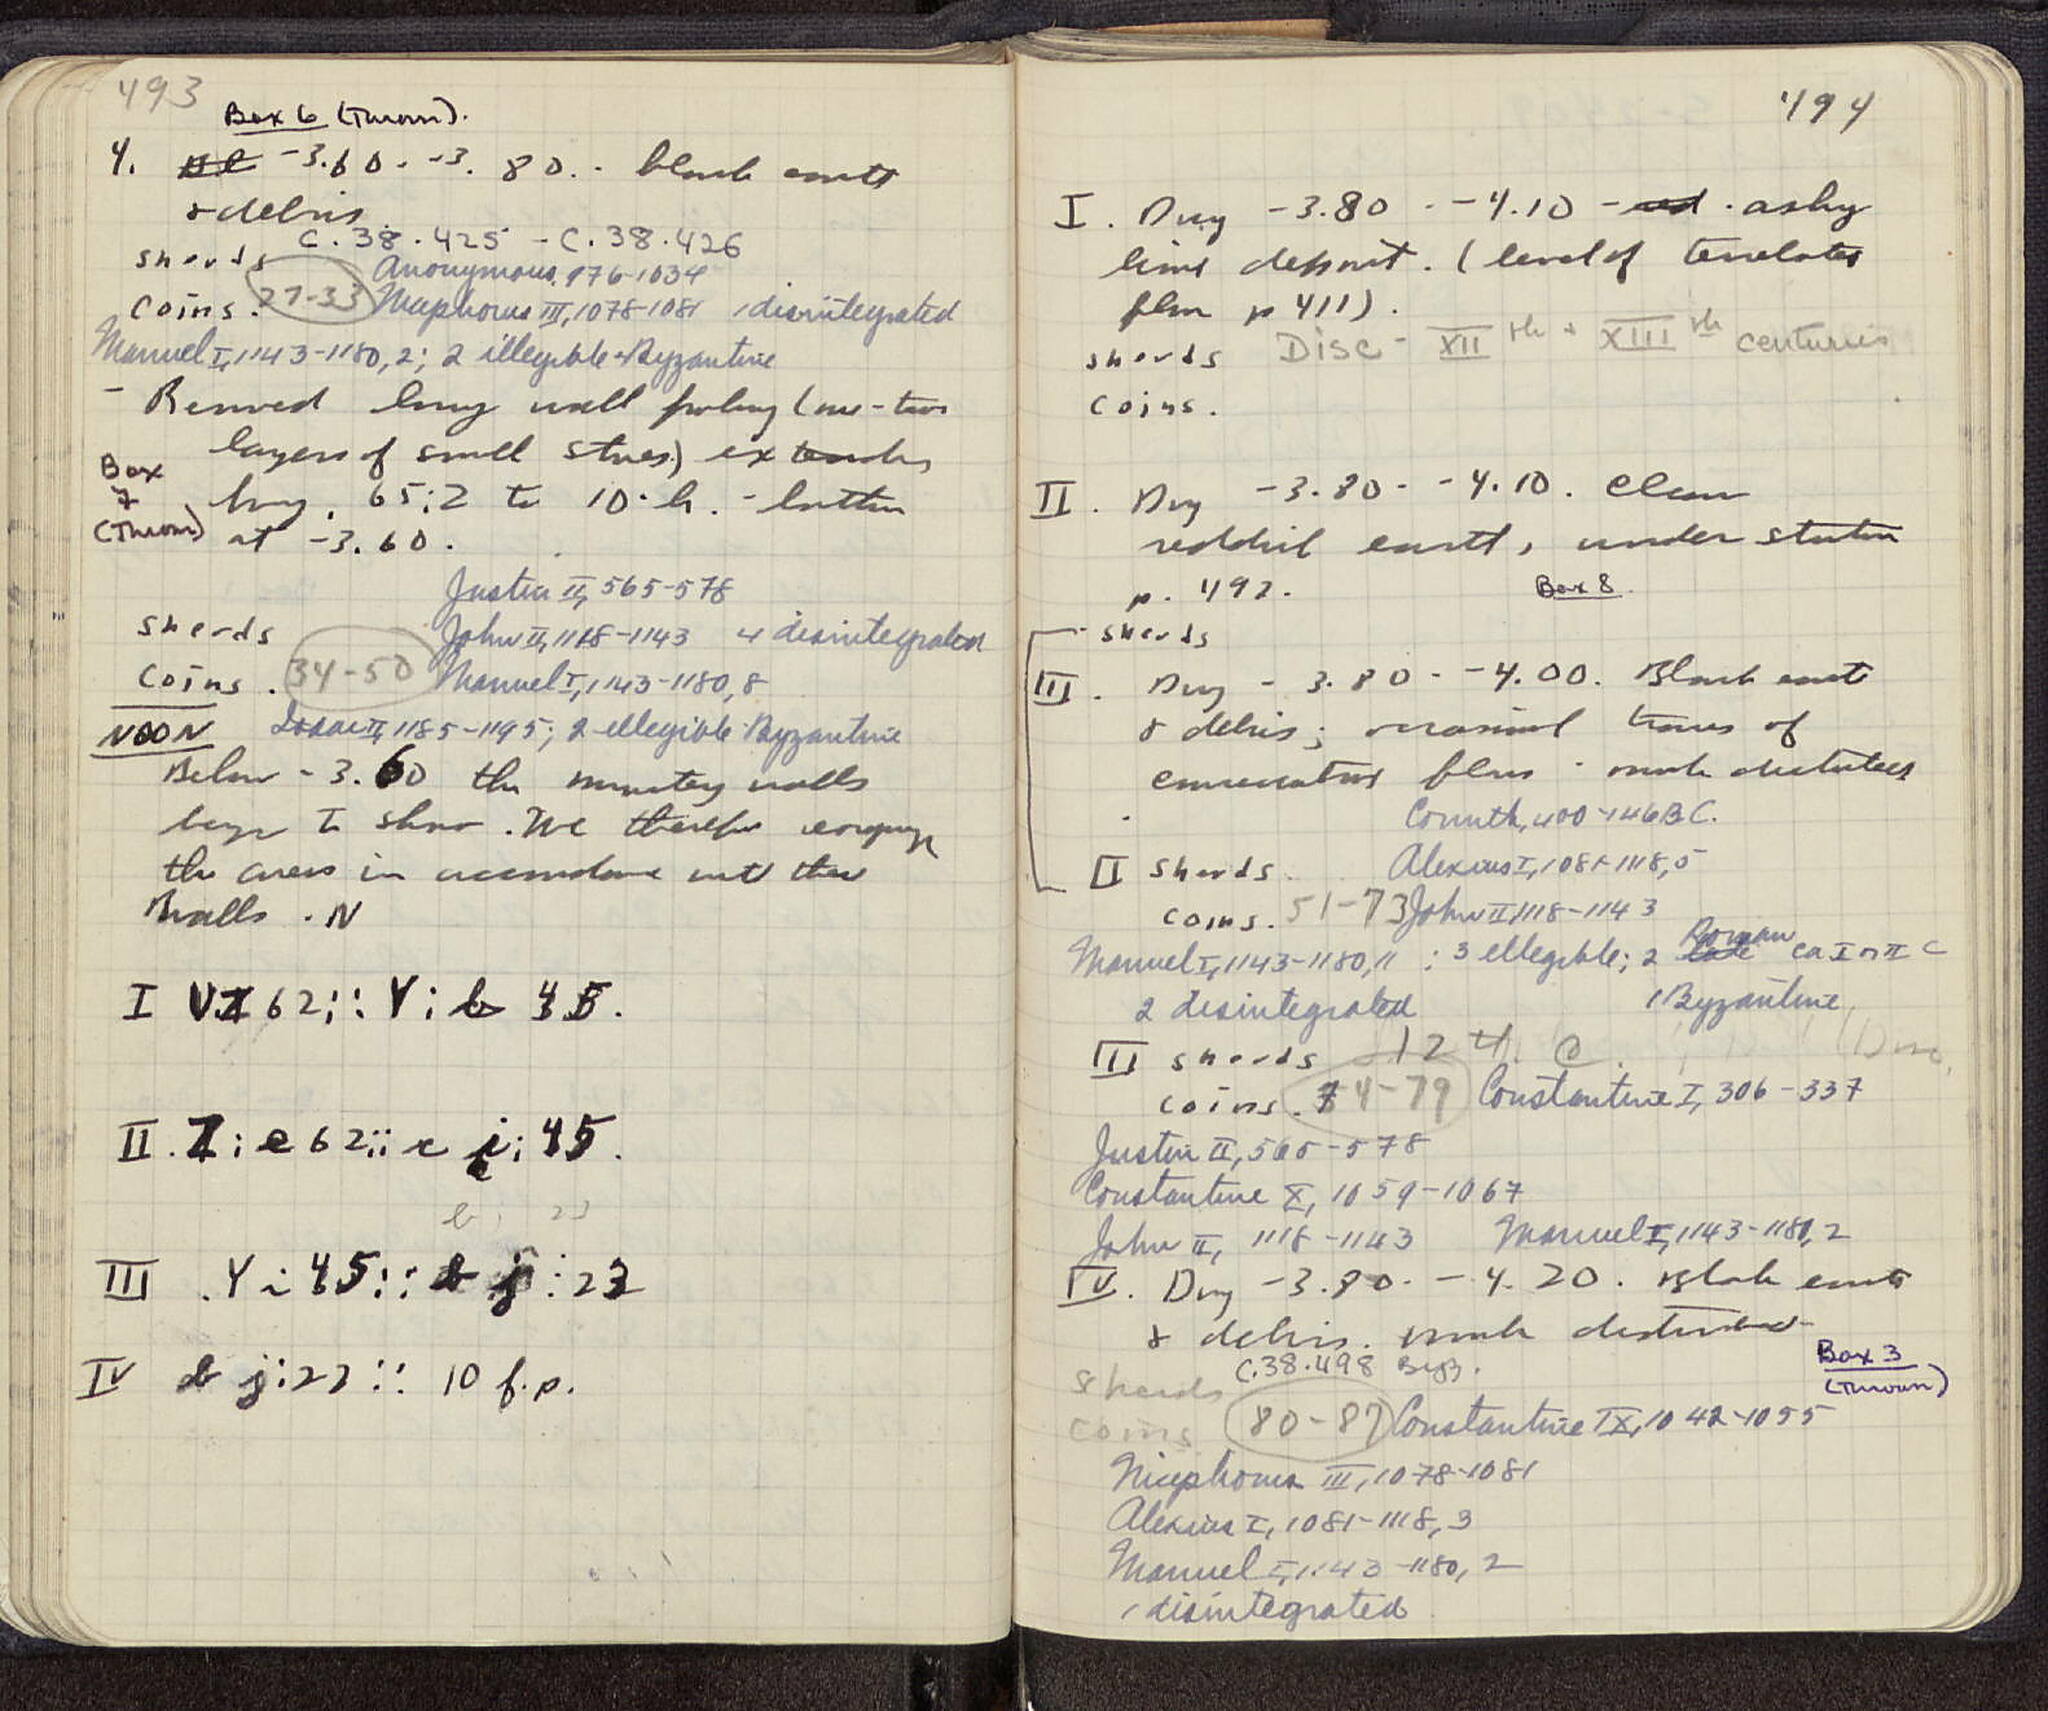 493
Box 6 (Thrown).
4. -3.60 - -3.80. - black earth
& debris
C.38.425 - C.38.426
sherds
Anonymous, 976-1034
coins. 27-33 Nicephorus III, 1078-1081 1 disintegrated
Manuel I, 1143-1180, 2; 2 illegible Byzantine
- Removed long wall (one-two
layers of small stones)
Box
7
(Thrown)
long, 65:2 to 10.h. - bottom
at -3.60.
Justin II, 565-578
sherds
John II, 1118-1143 4 disintegrated
coins. 34-50 Manuel I, 1143-1180, 8
NOON Isaac II, 1185-1195; 2 illegible Byzantine
Below -3.60 the monastery walls
began to show. We therefore
the areas in accordance with these
walls. N
I 62;: Y: b 45.
II. Z: e 62;: e : 45.
b. 23
III. Y: 45:: j: 23
IV b j:22:: 10 f.p.
494
I. Dug -3.80 - -4.10 - red. ashy
lime deposit. (level of
p 411).
Disc - XIIth + XIIIth centuries
sherds
coins.
II. Dug -3.80 - -4.10. Clean
reddish earth, under
p. 492.
Box 8
sherds
III. Dug -3.80 - -4.00. Black earth
& debris; occasional traces of
floor - much disturbed
Corinth, 400-146 B.C.
II sherds. Alexius I, 1081-1118, 5
coins. 51-73 John II 1118-1143
Manuel I, 1143-1180, 11; 3 illegible; 2 Roman ca I or II C
2 disintegrated 1 Byzantine
III sherds 12th. C.
coins. 74-79 Constantine I, 306-337
Justin II, 565-578
Constantine X, 1059-1067
John II, 1118-1143 Manuel I, 1143-1180, 2
IV. Dug -3.80. - 4.20. Black earth
& debris. much disturbed
C.38.498 Byz.
Box 3
(Thrown)
sherds
coins 80-87 Constantine IX, 1042-1055
Nicephorus III, 1078-1081
Alexius I, 1081-1118, 3
Manuel I, 1143-1180, 2
1 disintegrated